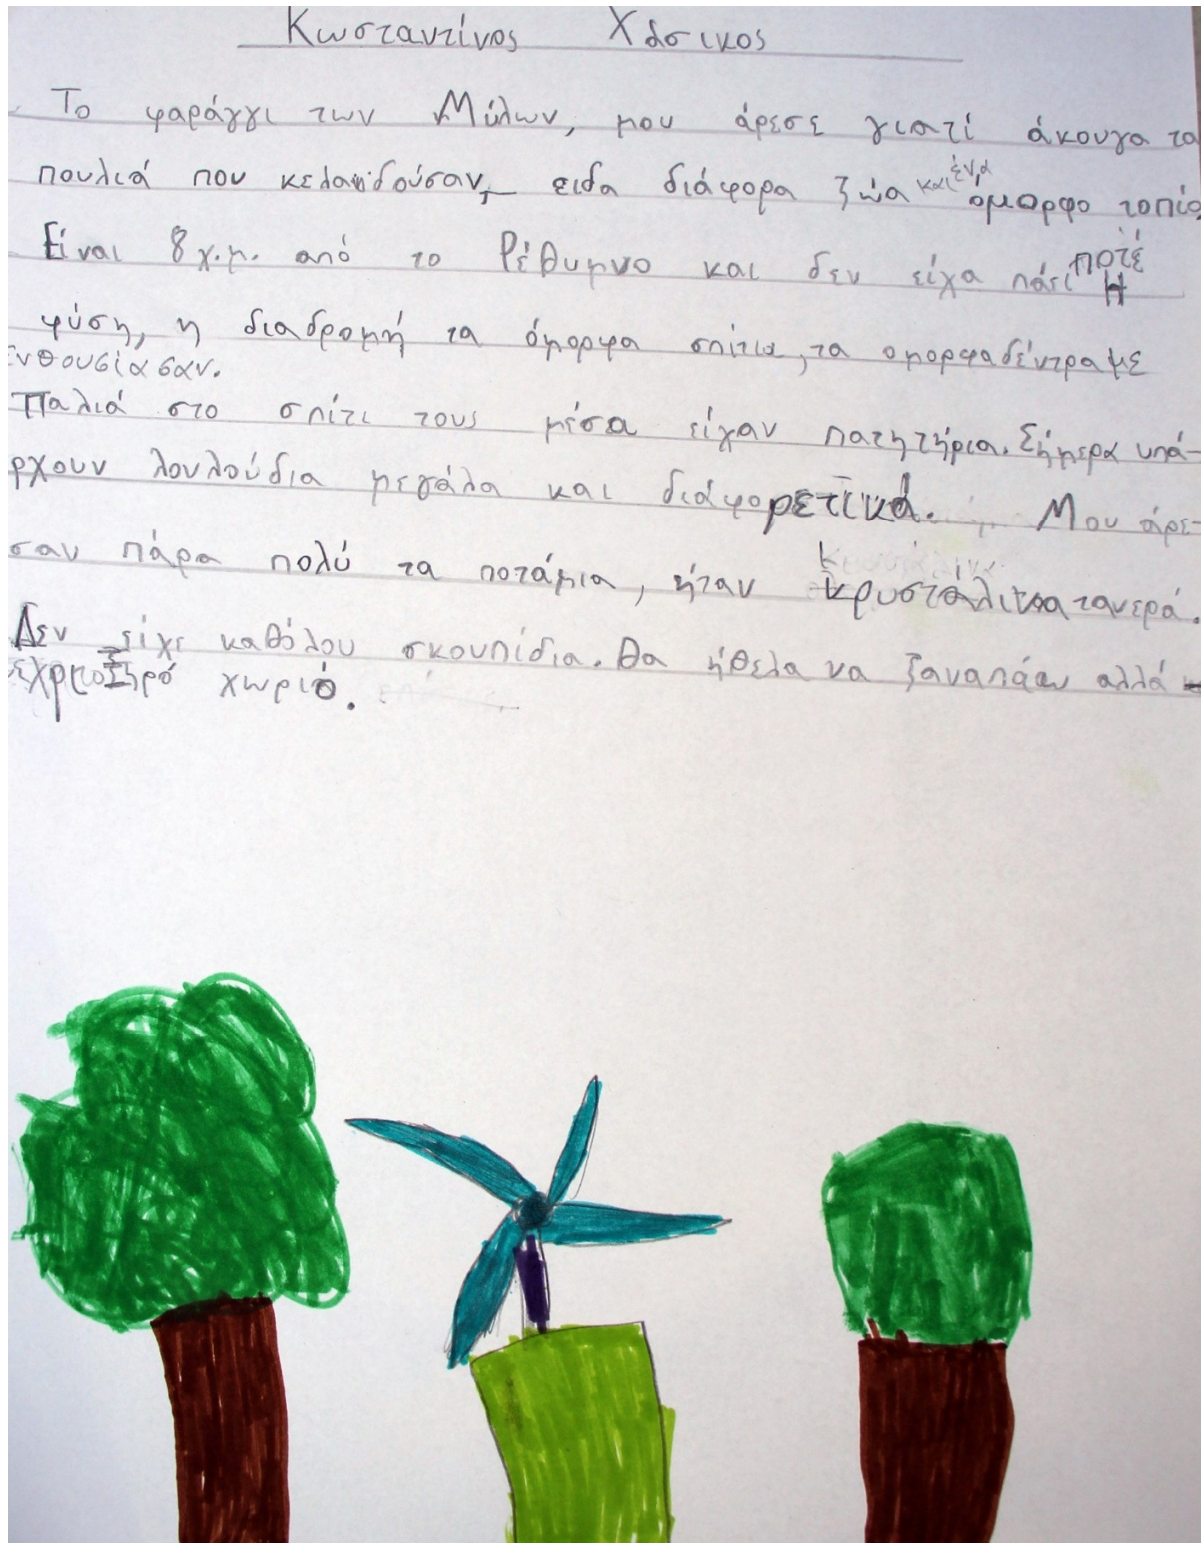 Κωσταντίνος Χάσικος
Το φαράγγι των Μύλων, μου άρεσε γιατί άκουγα τα
πουλιά που κελαηδούσαν, ειδα διάφορα ζώα και ένα όμορφο τοπίο
Είναι 8 χ.μ. από το Ρέθυμνο και δεν είχα πάει ποτέ Η
φύση, η διαδρομή τα όμορφα σπίτια, τα ομορφα δέντρα με
ενθουσίασαν.
Παλιά στο σπίτι τους μέσα είχαν πατητήρια. Σήμερα υπά-
ρχουν λουλούδια μεγάλα και διάφορετικά. Μου άρε-
σαν πάρα πολύ τα ποτάμια, ήταν τα νερά.
Δεν είχε καθόλου σκουπίδια. Θα ήθελα να ξαναπάω αλλά
χωριό.